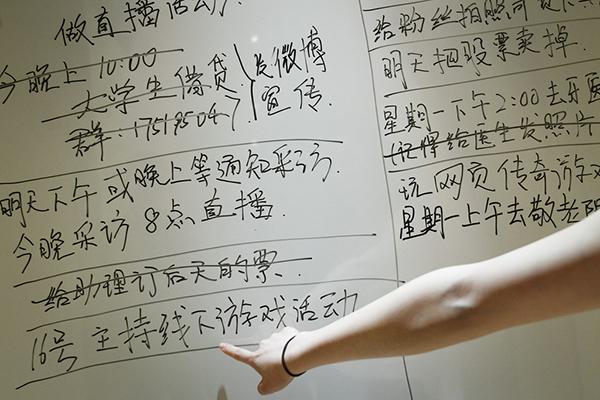 做直播活动.
今晚上 10:00
大学生借贷
群:175195047
发微博
宣传.
明天下午或晚上等通知采访.
今晚采访 8点直播.
给助理订后天的票.
16号 主持线下游戏活动
给粉丝拍照
明天把股票卖掉.
星期一下午2:00去牙医
(记得给医生发照片
玩网页传奇游戏
星期一上午去敬老院